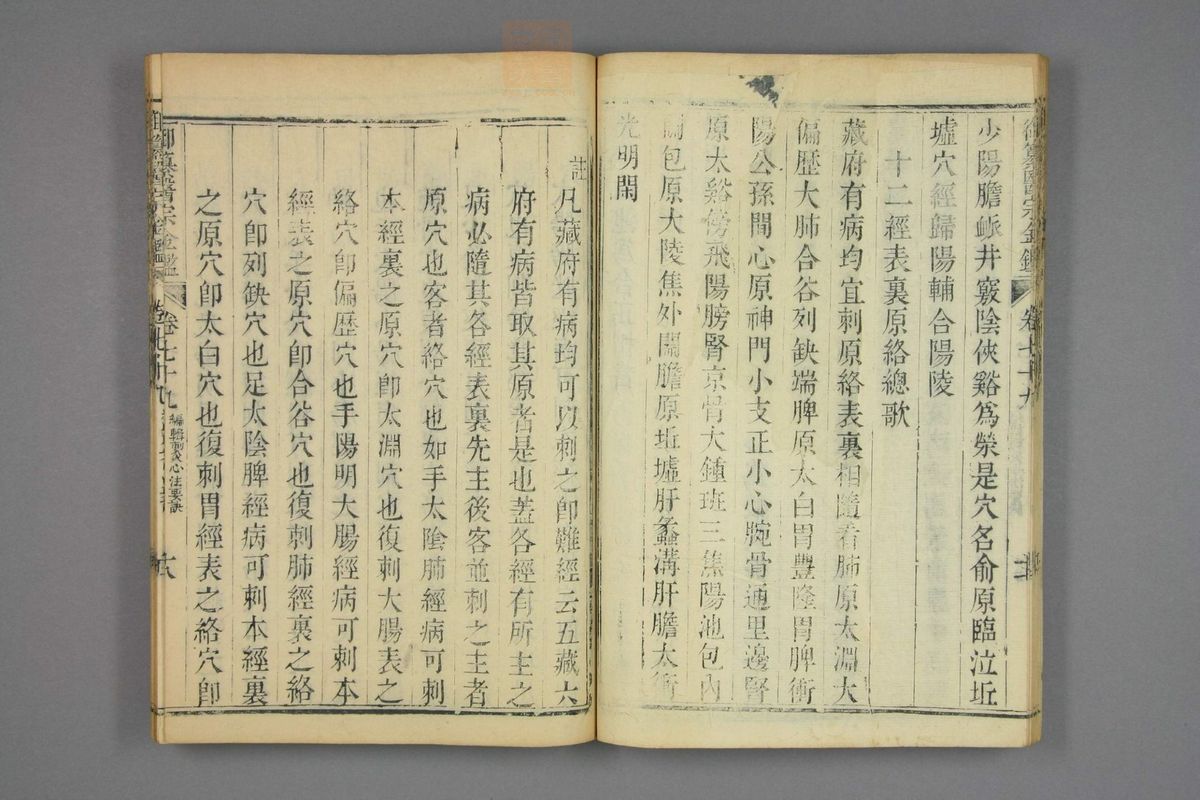 御纂醫宗金鑑 卷七十九
少陽膽䘑井竅陰俠谿為滎是穴名俞原臨泣坵
墟穴經歸陽輔合陽陵
十二經表裏原絡總歌
藏府有病均宜刺原絡表裏相隨看肺原太淵大
偏歷大肺合谷列缺端脾原太白胃豐隆胃脾衝
陽公孫間心原神門小支正小心腕骨通里邊腎
原太谿傍飛陽膀腎京骨大鍾班三焦陽池包內
關包原大陵焦外關膽原坵墟肝蠡溝肝膽太衝
光明閑
註
凡藏府有病均可以刺之卽難經云五藏六
府有病皆取其原者是也蓋各經有所主之
病必隨其各經表裏先主後客並刺之主者
原穴也客者絡穴也如手太陰肺經病可刺
本經裏之原穴卽太淵穴也復刺大腸表之
絡穴卽偏歷穴也手陽明大腸經病可刺本
經表之原穴卽合谷穴也復刺肺經裏之絡
穴卽列缺穴也足太陰脾經病可刺本經裏
之原穴卽太白穴也復刺胃經表之絡穴卽
御纂醫宗金鑑 卷七十九 編輯刺灸心法要訣 六